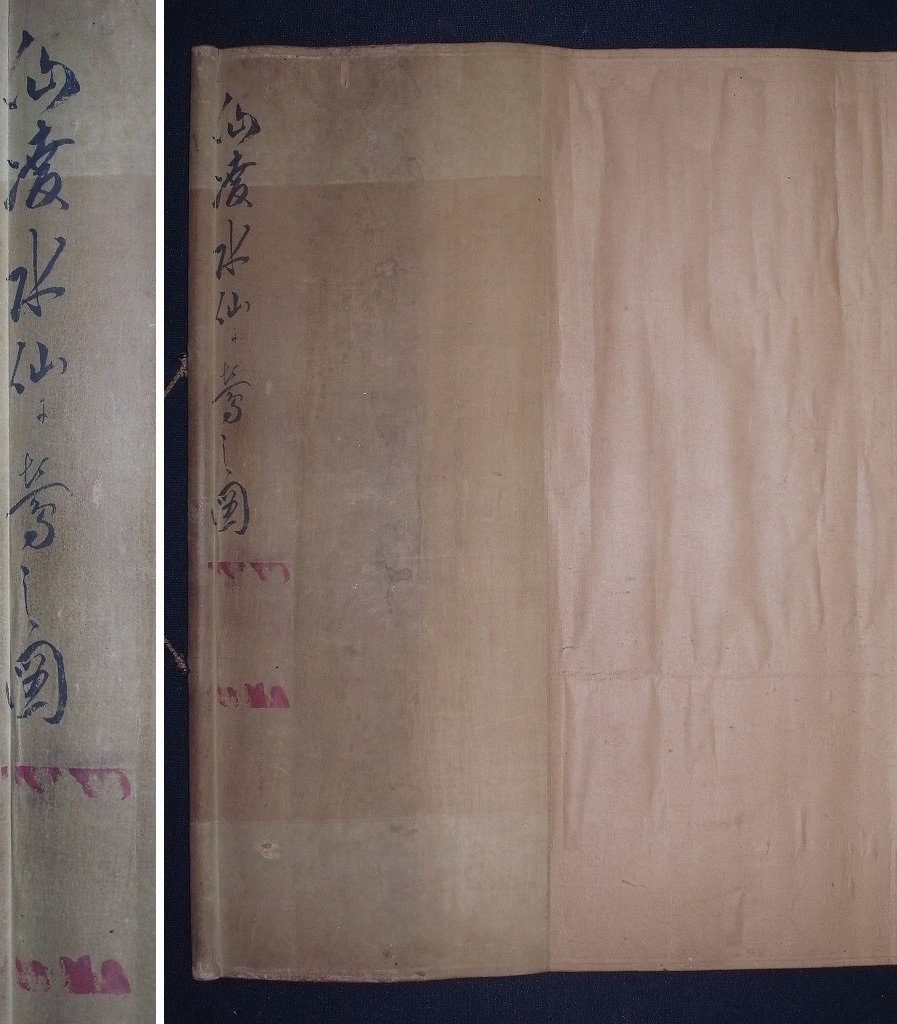 仙凌水仙ニ鶯之図
仙凌水仙ニ鶯之図